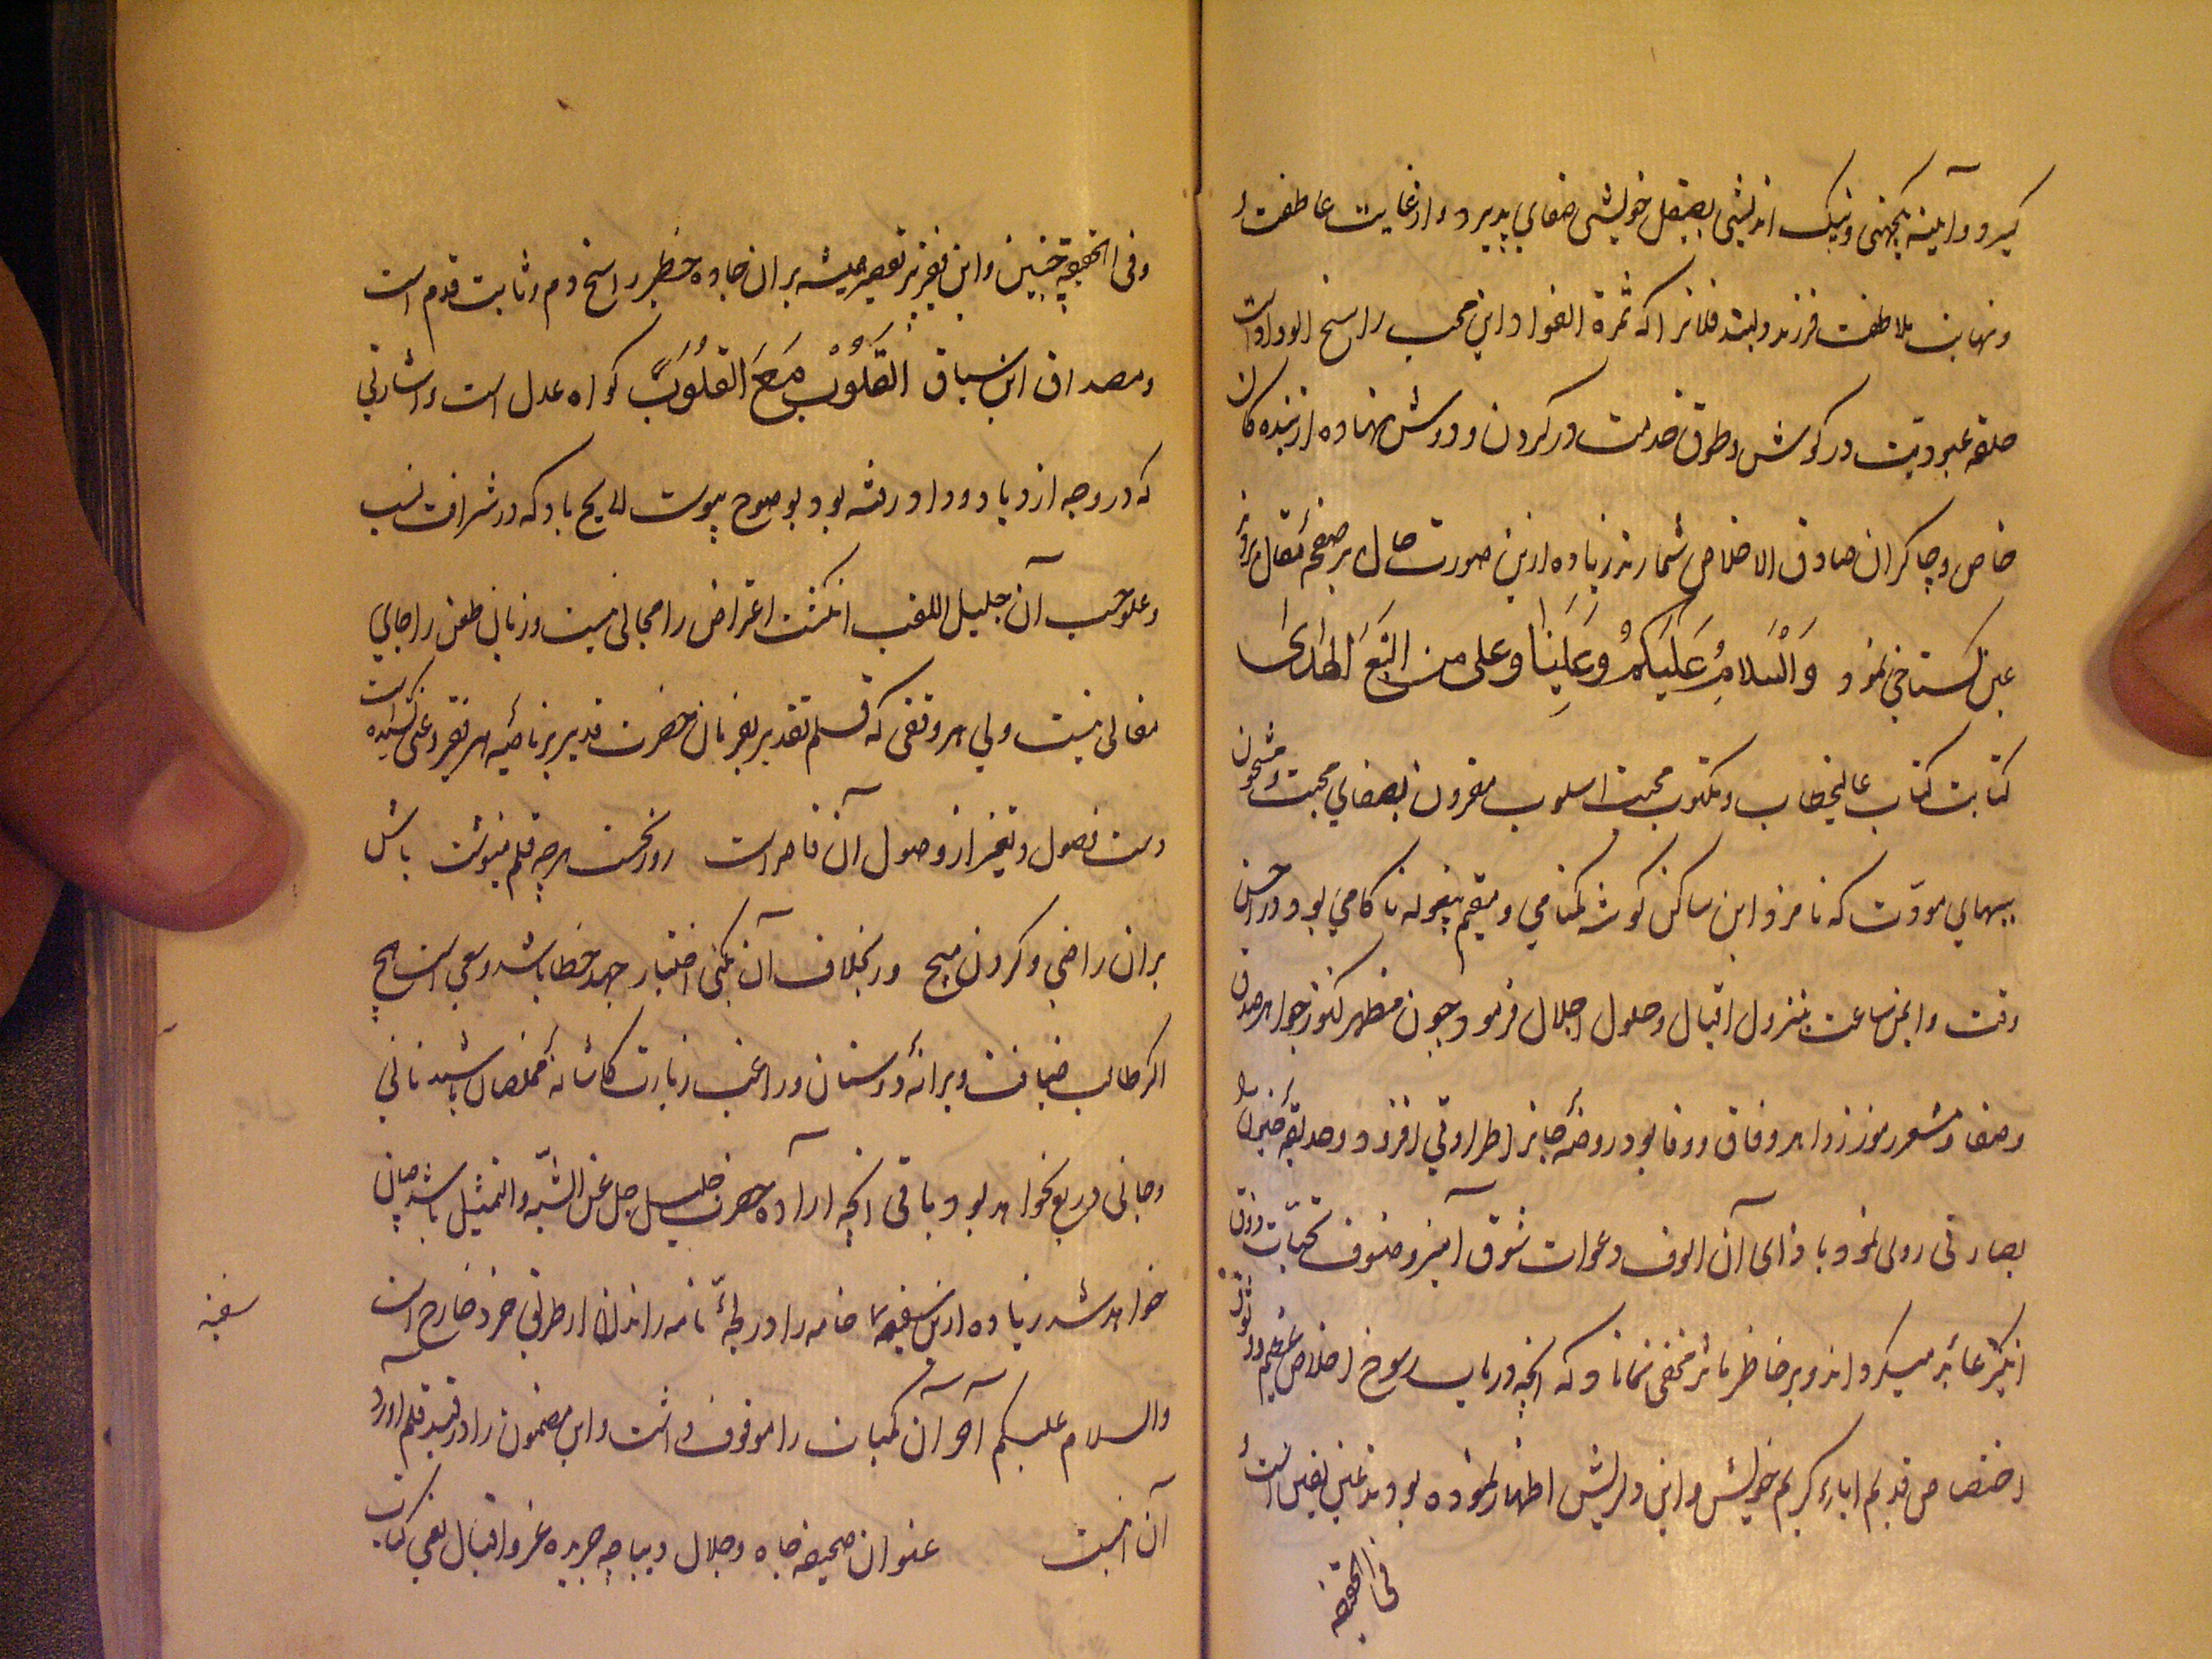 گیرد و آیینه یکجهتی و نیک اندیشی بصیقل خویشی صفایی پذیرد و از غایت عاطفت و
و نهایت ملاطفت فرزند دلبند فلانرا که ثمرة الفؤاد این محب راسخ الوداد است
حلقه عبودیت در کوش و طوق خدمت در کردن و دوش نهاده از بنده کان
خاص و چاکران صادق الاخلاص شمارند زیاده ازین صورت حال بر صفحهٔ مقال
عین کستاخی نمود وَالسَلامُ عَلَیکُم وَعَلَینا وعلی من اتبَعَ الهُدی
کتابت کتاب عالیخطاب و مکتوب محبت اسلوب مقرون بصفای محبت و مشحون
ببهای مودّت که نامزد این ساکن کوشه کمنامی و مقیم بیغوله ناکامی بود در احسن
وقت و ایمن ساعت نزول اقبال و حلول اجلال فرمود چون مظهر کنوز جواهر صدق
و صفا و مشعر رموز زواهر وفاق و وفا بود روضهٔ جانرا طراوتی افزود و حدیقهٔ
بصارتی روی نمود بازای آن الوف دعوات شوق آمیز و صنوف تحیّات ذوق
انکیز عاید میکرداند و بر خاطر مخفی نماناد که انچه در باب رسوخ اخلاص
اختصاص قدیم اباء کریم خویش و این درویش اظهار نموده بودند عین یقین است و
فی الحقیقه
وفی الحقیقه چنین و این فقیر نیز همیشه بر ان جاده خطیر راسخ دم و ثابت قدم است
و مصداق این سیاق القُلُوبُ مَعَ القُلُوبِ کواه عدل است و اشارتی
که در وجه ازدیاد وداد رفته بود بوضوح پیوست لایح باد که در شرافت نسب
و علو حسب آن جلیل اللقب انکشت اعتراض را مجالی نیست و زبان طعن را جای
مقالی نیست ولی هر وقتی که قلم تقدیر بفرمان حضرت قدیر بر ناصیه هر فقیر و غنی کشیده است
دست فصول و تغیر از وصول آن قاصر است روز نخست هرچه قلم بنوشت باش
بران راضی و کردن مپیچ ور بخلاف آن بکنی اختیار جهد خطا باشد و سعی است هیچ
اکر طالب ضیافت ویرانهٔ دوستان و راغب زیارت کاشانهٔ مخلصان باشید نانی
و جانی دریغ نخواهد بود و باقی انچه اراده حضرت جلیل جل عن الشبّه والتمثیل باشد چنان
خواهد شد زیاده ازین سفینهٔ خامه را در لجّهٔ نامه راندن از طریق خرد خارج است
والسلام علیکم آخر آن کتابت را موقوف داشت و این مضمون را در قید قلم اورد
آن اینست عنوان صحیفه جاه و جلال دیباچه جریده عز و اقبال یعنی کتاب
سفینه